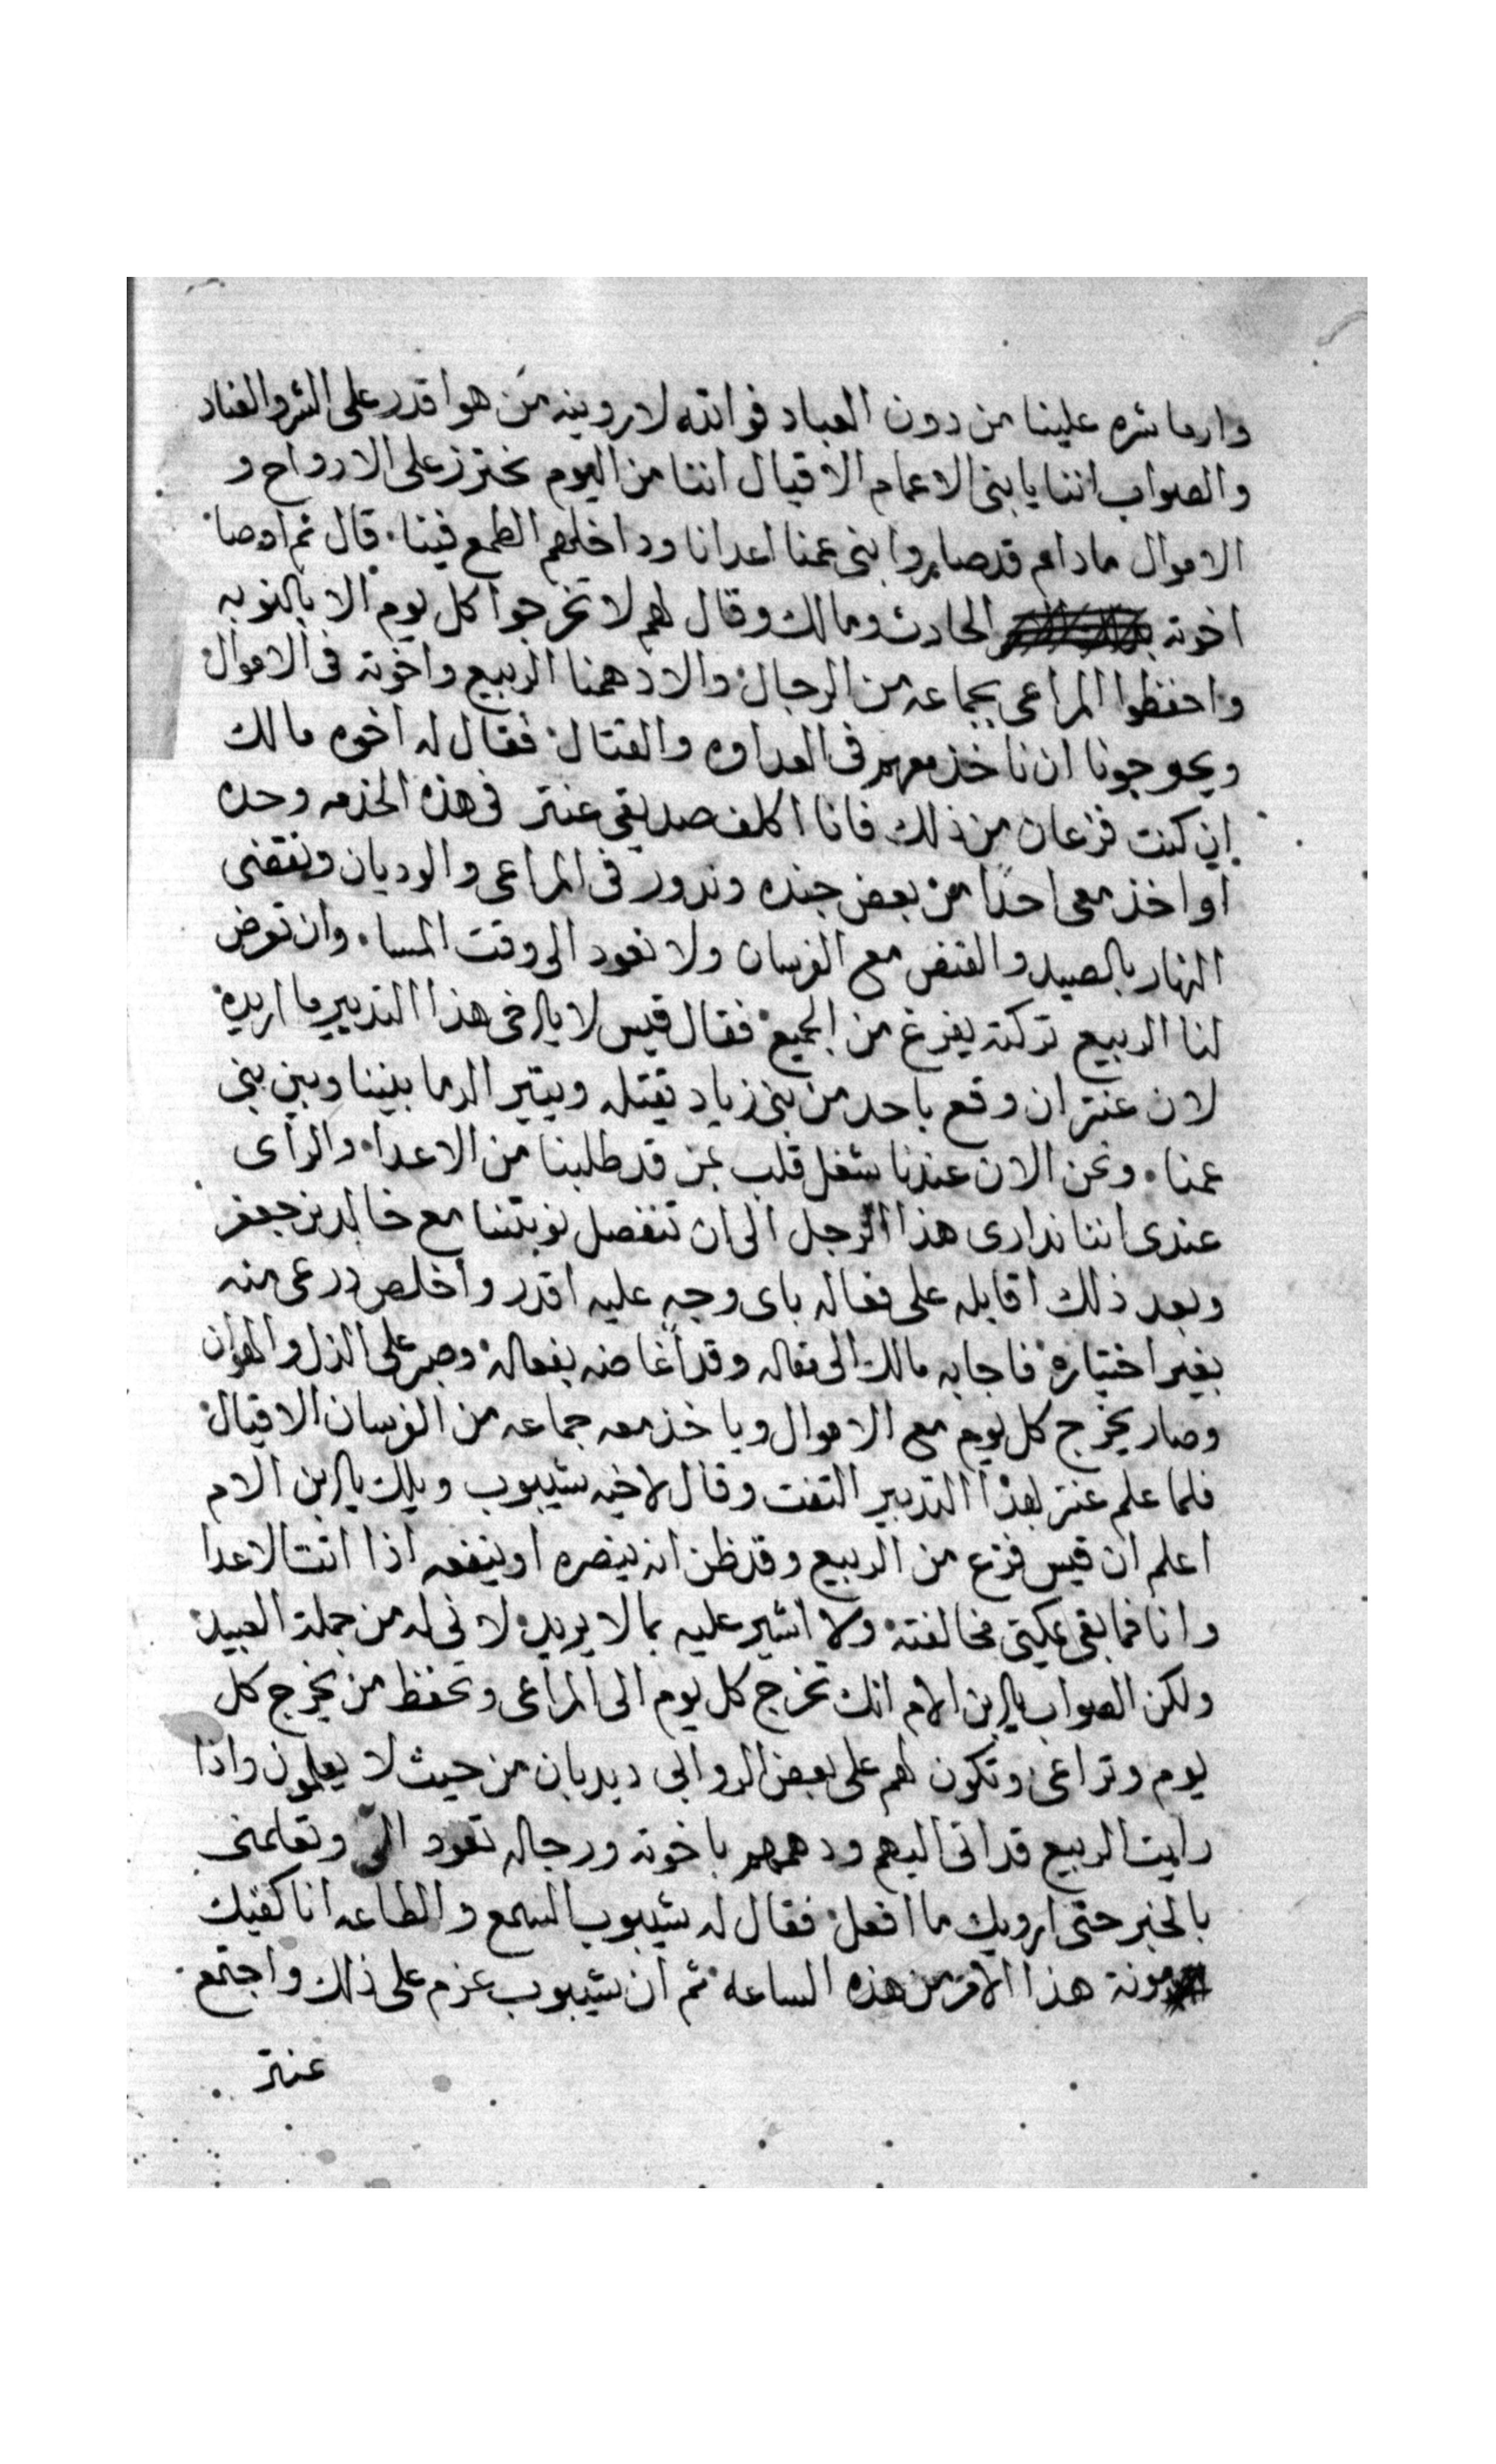 وارما شره علينا من دون العباد فوالله لاروينه من هو اقدر على الشر والعناد
والصواب اننا يا بنى الاعمام الاقيال اننا من اليوم نحترز على الارواح و
الاموال مادام قد صاروا بنى عمنا اعدانا وداخلهم الطمع فينا. قال ثم اوصا
اخوته الحارث ومالك وقال لهم لا تخرجوا كل يوم الا بالنوبه
واحفظوا المراعى بجماعه من الرجال والا دهمنا الربيع واخوته فى الاموال
ويحوجونا ان ناخذ معهم فى العداوه والقتال فقال له اخوه مالك
ان كنت فزعان من ذلك فانا اكلف صديقى عنتر فى هذه الخدمه وحده
او اخذ معى احدا من بعض جنده وندور فى المراعى والوديان ونقضى
النهار بالصيد والقنص مع الفرسان ولا نعود الى وقت المسا. وان تعرض
لنا الربيع تركته يفزغ من الجميع فقال قيس لا ياخى هذا التدبير ما اريده
لان عنتر ان وقع باحد من بنى زياد يقتله ويثير الدما بيننا وبين بنى
عمنا. ونحن الان عندنا شغل قلب بمن قد طلبنا من الاعدا. والراى
عندى اننا ندارى هذا الرجل الى ان تنفصل نوبتنا مع خالد بن جعفر
وبعد ذلك اقابله على فعاله باى وجه عليه اقدر واخلص درعى منه
بغير اختياره فاجابه مالك الى مقاله وقد أغاضه بفعاله وصبر على الذل والهوان
وصار يخرج كل يوم مع الاموال وياخذ معه جماعه من الفرسان الاقيال
فلما علم عنتر بهذا التدبير التفت وقال لاخيه شيبوب ويلك يابن الام
اعلم ان قيس فزع من الربيع وقد ظن انه ينصره او ينفعه اذا اتت الاعدا
وانا فما بقى يمكننى مخالفته ولا اشير عليه بما لا يريد لانى له من جملة العبيد
ولكن الصواب يابن الام انك تخرج كل يوم الى المراعى وتحفظ من يخرج كل
يوم وتراعى وتكون لهم على بعض الروابى ديدبان من حيث لا يعلمون واذا
رايت الربيع قد اتى اليهم ودهمهم باخوته ورجاله تعود الىّ وتعلمنى
بالخبر حتى اريك ما افعل فقال له شيبوب السمع والطاعه انا اكفيك
مونة هذا الامر من هذه الساعه ثم ان شيبوب عزم على ذلك واجتمع
عنتر